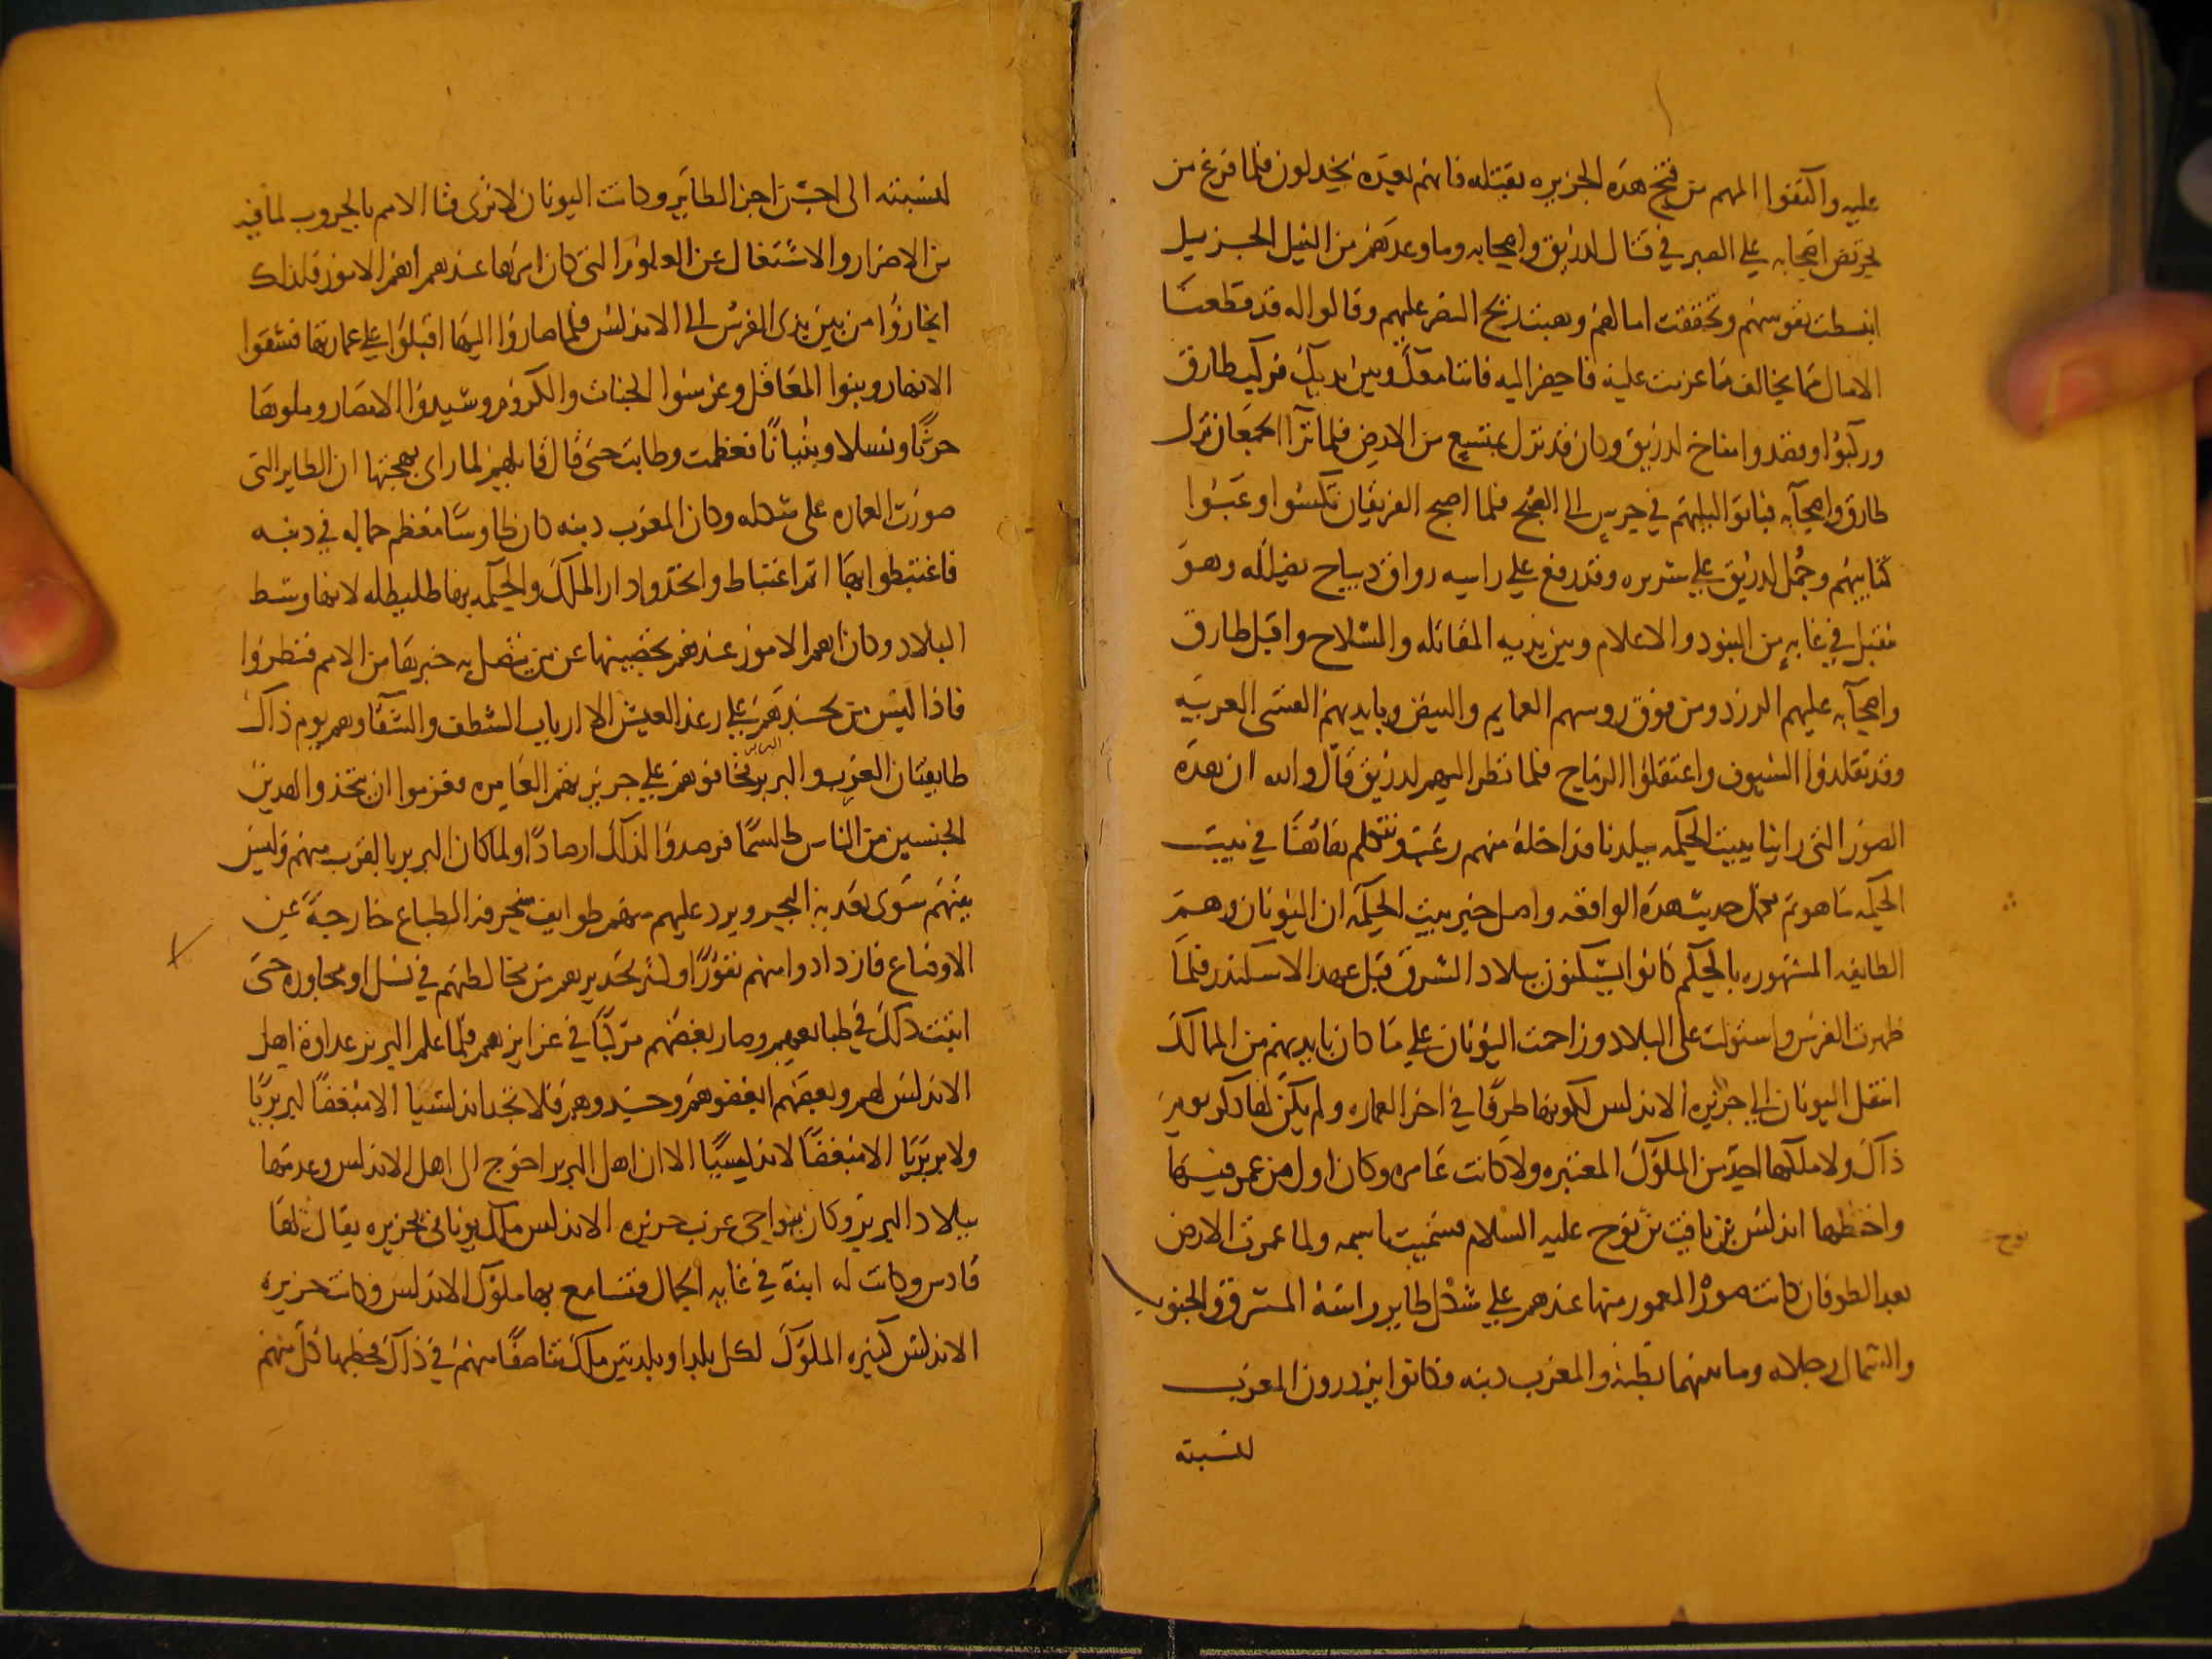 عليه واكتفوا المهم من فتح هذه الجزيره بقتله فانهم بعده يخذلون فلما فرغ من
تحريض اصحابه على الصبر في قتال لدريق واصحابه وما وعدهم من النيل الجزيل
انبسطت نفوسهم وتحققت امالهم وهبت ريح النصر عليهم وقالوا له قد قطعنا
الامال مما يخالف ما عزمت عليه فاحضر اليه فاننا معك وبين يديك فركب طارق
وركبوا وقصدوا مناخ لدريق وكان قد نزل بمتسع من الارض فلما تراا الجمعان نزل
طارق واصحابه فباتوا ليلتهم في حرس الى الصبح فلما اصبح الفريقان تكتبوا وعبوا
كتايبهم وحمل لدريق على سريره وقد رفع على راسه رواق ديباج يظلله وهو
مقبل في غابه من البنود والاعلام وبين يديه المقاتله والسلاح واقبل طارق
واصحابه عليهم الزرد ومن فوق روسهم العمايم والبيض وبايديهم القسى العربيه
وقد تقلدوا السيوف واعتقلوا الرماح فلما نظر اليهم لدريق قال والله ان هذه
الصور التى راينا ببيت الحكمه ببلدنا فداخله منهم رعب ونتكلم هاهنا في بيت
الحكمه ما هو ثم نكمل حديث هذه الواقعه واصل خبر بيت الحكمه ان اليونان وهم
الطايفه المشهوره بالحكم كانوا يسكنون ببلاد الشرق قبل عهد الاسكندر فلما
ظهرت الفرس واستولت على البلاد وزاحمت اليونان على ما كان بايديهم من الممالك
انتقل اليونان الى جزيره الاندلس لكونها طرفا في اخر العماره ولم يكن لها ذكر يوميذ
ذاك ولا ملكها احد من الملوك المعتبره ولا كانت عامره وكان اول من عمر فيها
واختطها اندلس بن يافث بن نوح عليه السلام فسميت باسمه ولما عمرت الارض
نوح
بعد الطوفان كانت صورة المعمور منها عندهم على شكل طاير راسه المشرق والجنوب
والشمال رجلاه وما بينهما بطنه والمغرب ذنبه فكانوا يزدرون المغرب
لنسبته
لنسبته الى اخس اجزا الطاير وكانت اليونان لا ترى فنا الامم بالحروب لما فيه
من الاضرار والاشتغال عن العلوم التى كان امرها عندهم اهم الامور فلذلك
انحازوا من بين يدى الفرس الى الاندلس فلما صاروا اليها اقبلوا على عمارتها فشقوا
الانهار وبنوا المعاقل وغرسوا الجنات والكروم وشيدوا الامصار وملوها
حرثا ونسلا وبنيانا فعظمت وطابت حتى قال قايلهم لما راى بهجتها ان الطاير التى
صورت العماره على شكله وكان المغرب ذنبه كان طاوسا معظم جماله في ذنبه
فاغتبطوا بها اتم اغتباط واتخذوا دار الملك والحكمه بها طليطله لانها وسط
البلاد وكان اهم الامور عندهم تحصينها عن من يتصل به خبرها من الامم فنظروا
فاذا ليس من يحسدهم على رغد العيش الا ارباب الشظف والشقا وهم يوم ذاك
طايفتان العرب والبربر فخافوهم على جزيرتهم العامره فعزموا ان يتخذوا لهذين
البربر
الجنسين من الناس طلسما فرصدوا لذلك ارصادا ولما كان البربر بالقرب منهم وليس
بينهم سوى تعدية البحر ويرد عليهم منهم طوايف منحرفه الطباع خارجة عن
الاوضاع فازدادوا منهم نفورا وكثر تحذيرهم من مخالطتهم في نسل او مجاوره حتى
انبث ذلك في طبايعهم وصار بغضهم مركبا في غرايزهم فلما علم البربر عداوة اهل
الاندلس لهم وبغضهم ابغضوهم وحسدوهم فلا تجد اندلسيا الا مبغضا لبربريا
ولا بربريا الا مبغضا لاندلسيا الا ان اهل البربر احوج الى اهل الاندلس وعدمها
ببلاد البربر وكان بنواحى غرب جزيره الاندلس ملك يونانى بجزيره يقال لها
قادس وكانت له ابنة في غايه الجمال فتسامع بها ملوك الاندلس وكانت جزيرة
الاندلس كثيره الملوك لكل بلد او بلدتين ملك تناصفا منهم في ذلك فخطبها كل منهم